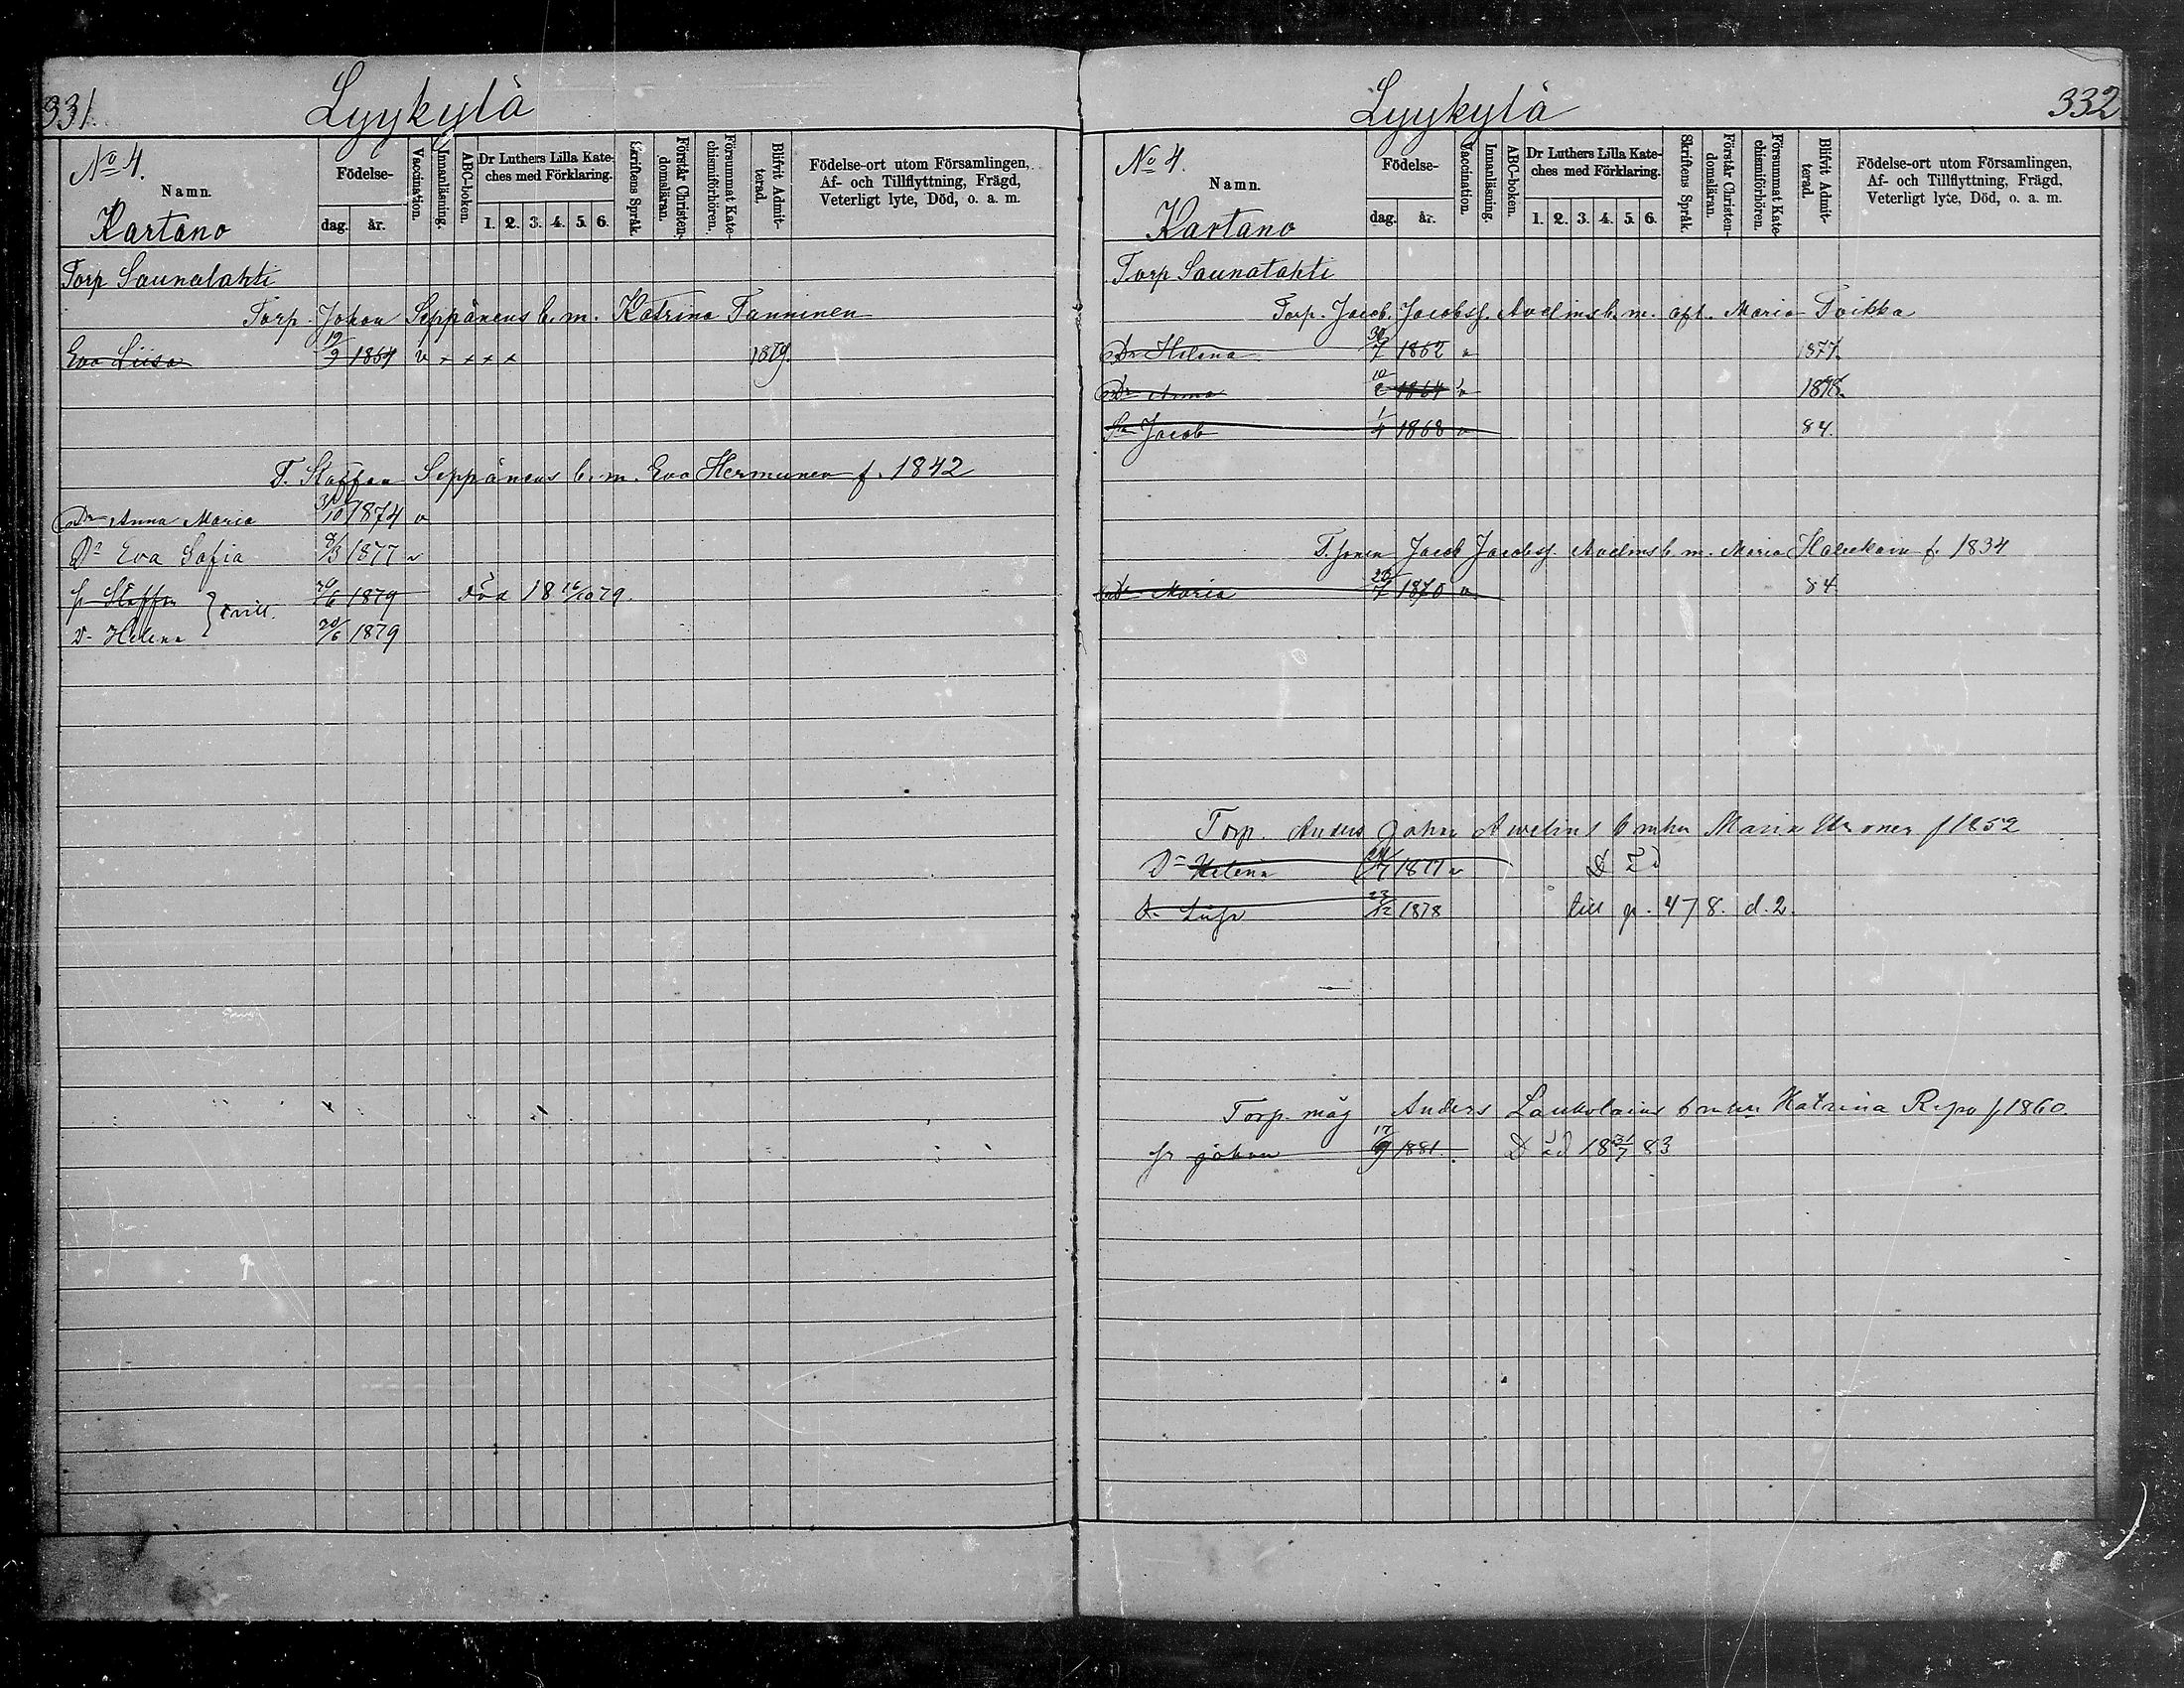 331.
Lyykylä
No 4.
Namn.
Kartano
Födelse-
dag. år.
Vaccination.
Innanläsning.
ABC-boken.
Dr Luthers Lilla Kate-
ches med Förklaring.
1. 2. 3. 4. 5. 6.
Skriftens Språk.
Förstår Christen-
domsläran.
Försummat Kate-
chismiförhören.
Blifvit Admit-
terad.
Födelse-ort utom Församlingen,
Af- och Tillflyttning, Frägd,
Veterligt lyte, Död, o. a. m.
Torp Saunalahti
Torp. Johan Seppänens b. m. Katrina Tanninen
Eva Liisa 19/9 1864 v x x x x 1879.
T. Staffan Seppänens b. m. Eva f. 1842
Dr Anna Maria 31/10 1874 v
Dr Eva Sofia 8/3 1877 v
S. Staffan 20/6 1879 död 18 16/10 79.
tvill.
D. Helena 20/6 1879
332
Lyykylä
No 4.
Namn.
Kartano
Födelse-
dag. år.
Vaccination.
Innanläsning.
ABC-boken.
Dr Luthers Lilla Kate-
ches med Förklaring.
1. 2. 3. 4. 5. 6.
Skriftens Språk.
Förstår Christen-
domsläran.
Försummat Kate-
chismiförhören.
Blifvit Admit-
terad.
Födelse-ort utom Församlingen,
Af- och Tillflyttning, Frägd,
Veterligt lyte, Död, o. a. m.
Torp Saunalahti
Torp. Jacob Jacobss. Avelins b. m. afl. Maria Toikka
Dr Helena 30/7 1862 v 1877.
Dr Anna 10/2 1864 v 1878.
Sn Jacob 1/4 1868 v 84.
T. sonen Jacob Jacobss. Avelins b. m. Maria f. 1834
Dr Maria 23/7 1870 v 84
Torp. Anders Johan Avelins b m hu Maria f 1852
Dr Helena 1877 v
D. 23/12 1878 till p. 478. d. 2.
Torp. måg Anders Laukolains b m hu Katrina Repo f 1860.
Sn Johan 17/9 1881. Död 18 31/7 83